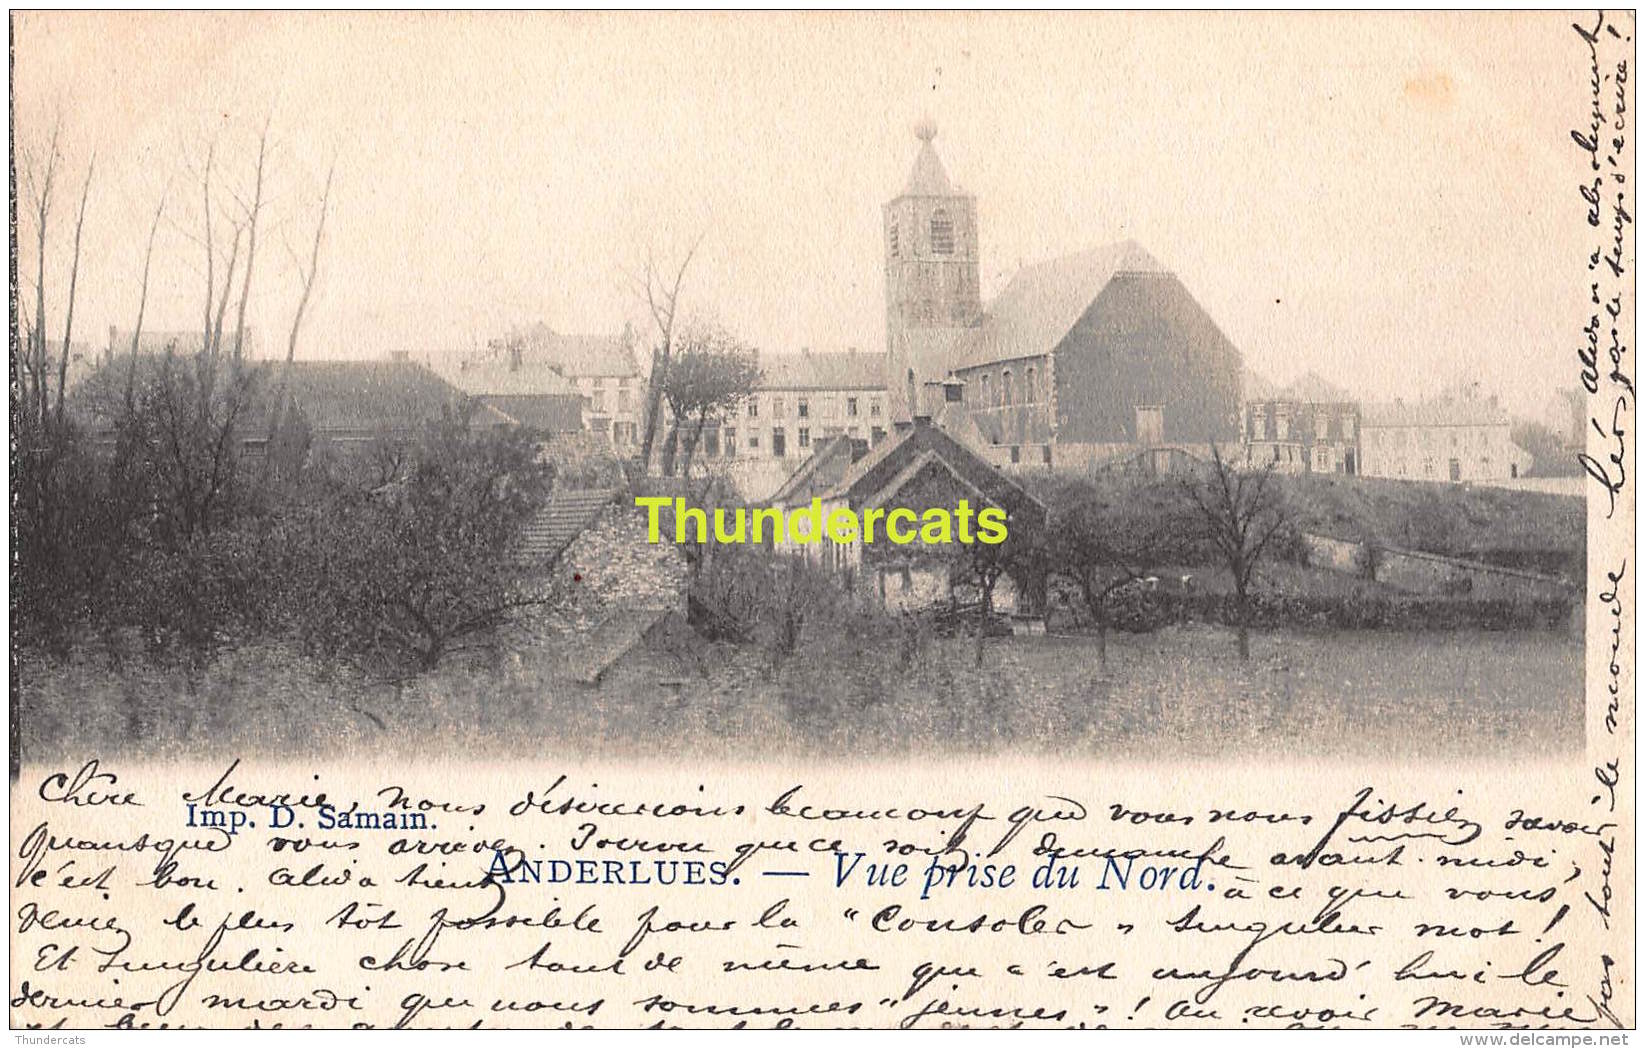 Thundercats
Chère Marie, nous désirerions beaucoup que vous nous fissiez savoir
Imp. D. Samain.
quand que vous arrivez. Pourvu que ce soit dimanche avant-midi,
c'est bon. Alida tient à ce que vous
ANDERLUES. — Vue prise du Nord.
veniez le plus tôt possible pour la "Consoler" singulier mot!
Et singulière chose tout de même que c'est aujourd'hui le
dernier mardi que nous sommes "jeunes"! Au revoir Marie
et
pas tout le monde hés
Alida n'a absolument
pas le temps d'écrire!
Thundercats
www.delcampe.net